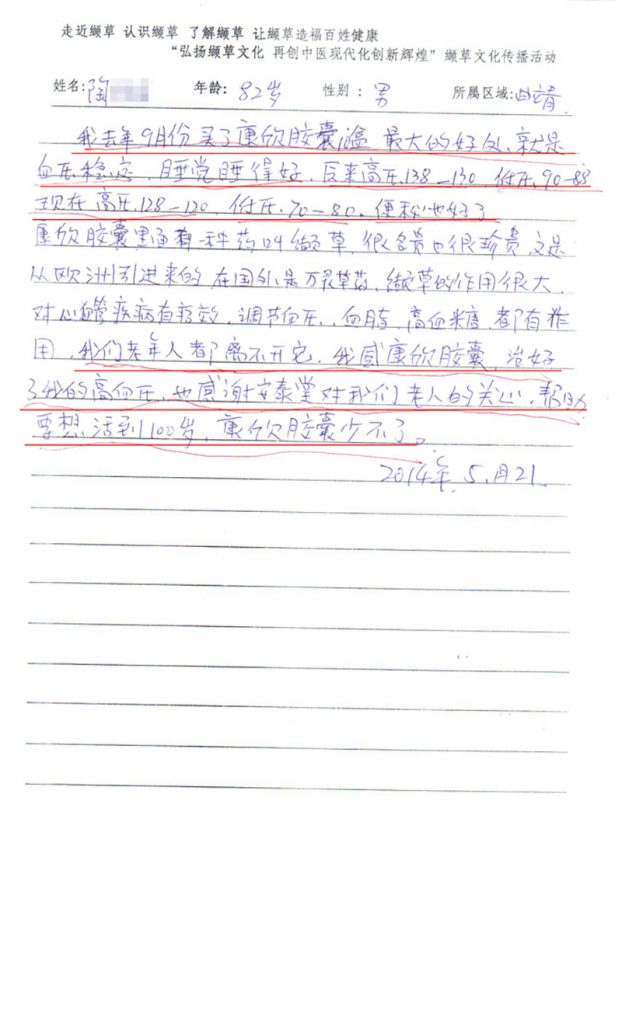 走近缬草 认识缬草 了解缬草 让缬草造福百姓健康
“弘扬缬草文化 再创中医现代化创新辉煌”缬草文化传播活动
姓名:陶 年龄:82岁 性别:男 所属区域:曲靖
我去年9月份买了康欣胶囊 盒 最大的好处,就是
血压稳定,睡觉睡得好,反来高压.138—130 低压.90—88
现在高压.128—120.低压.70—80.便秘也好了
康欣胶囊里面有一种药叫缬草,很名贵也很珍贵,这是
从欧洲引进来的,在国外是万灵草药,缬草的作用很大.
对心血管疾病有疗效,调节血压,血脂,高血糖,都有作
用,我们老年人都离不开它.我感康欣胶囊,治好
了我的高血压,也感谢安泰堂对我们老人的关心,帮助
要想活到100岁,康欣胶囊少不了。
2014年.5.月21.